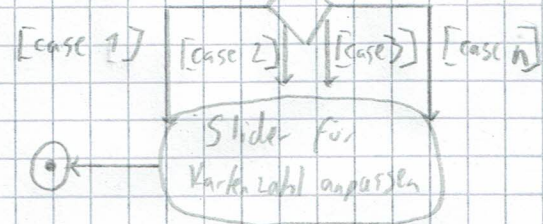 [case 1] [case 2] [case 3] [case n]
Slider für
Kartenzahl anpassen